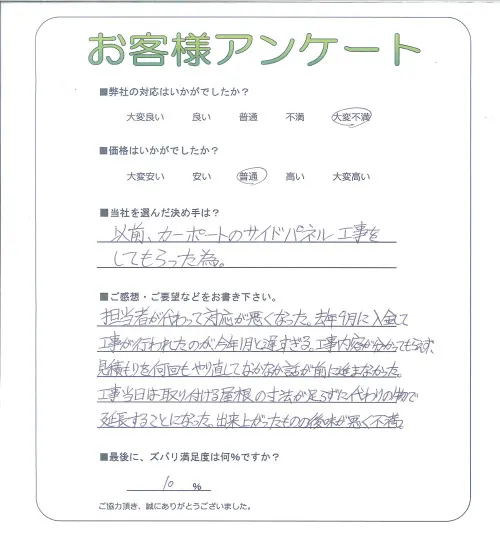 お客様アンケート
■弊社の対応はいかがでしたか？
大変良い 良い 普通 不満 大変不満
■価格はいかがでしたか？
大変安い 安い 普通 高い 大変高い
■当社を選んだ決め手は？
以前、カーポートのサイドパネル工事を
してもらった為。
■ご感想・ご要望などをお書き下さい。
担当者が代わって対応が悪くなった。去年9月に入金して
工事が行われたのが今年1月と遅すぎる。工事内容が分かってもらえず、
見積もりを何回もやり直してなかなか話が前に進まなかった。
工事当日は取り付ける屋根の寸法が足らずに代わりの物で
延長することになった。出来上がったものの後味が悪く不満。
■最後に、ズバリ満足度は何%ですか？
10 %
ご協力頂き、誠にありがとうございました。